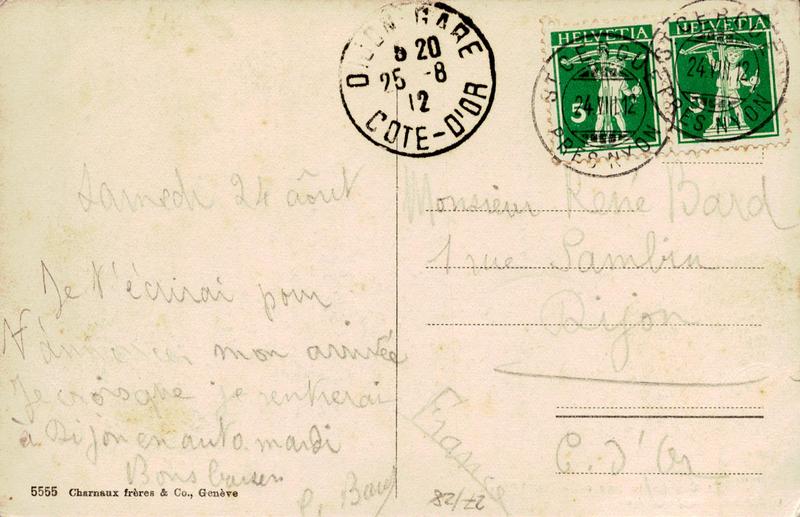 DIJON-GARE
8 20
25 -8
12
COTE-D'OR
HELVETIA
5
ST CERGUES
24 VIII 12
PRÈS NYON
HELVETIA
5
ST CERGUES
24 VIII 12
PRÈS NYON
Samedi 24 août
Je t'écrirai pour
t'annoncer mon arrivée
Je crois que je rentrerai
à Dijon en auto mardi
Bons baisers
Monsieur René Bard
1 rue Sambin
Dijon
C. d'Or
France
5555 Charnaux frères & Co., Genève